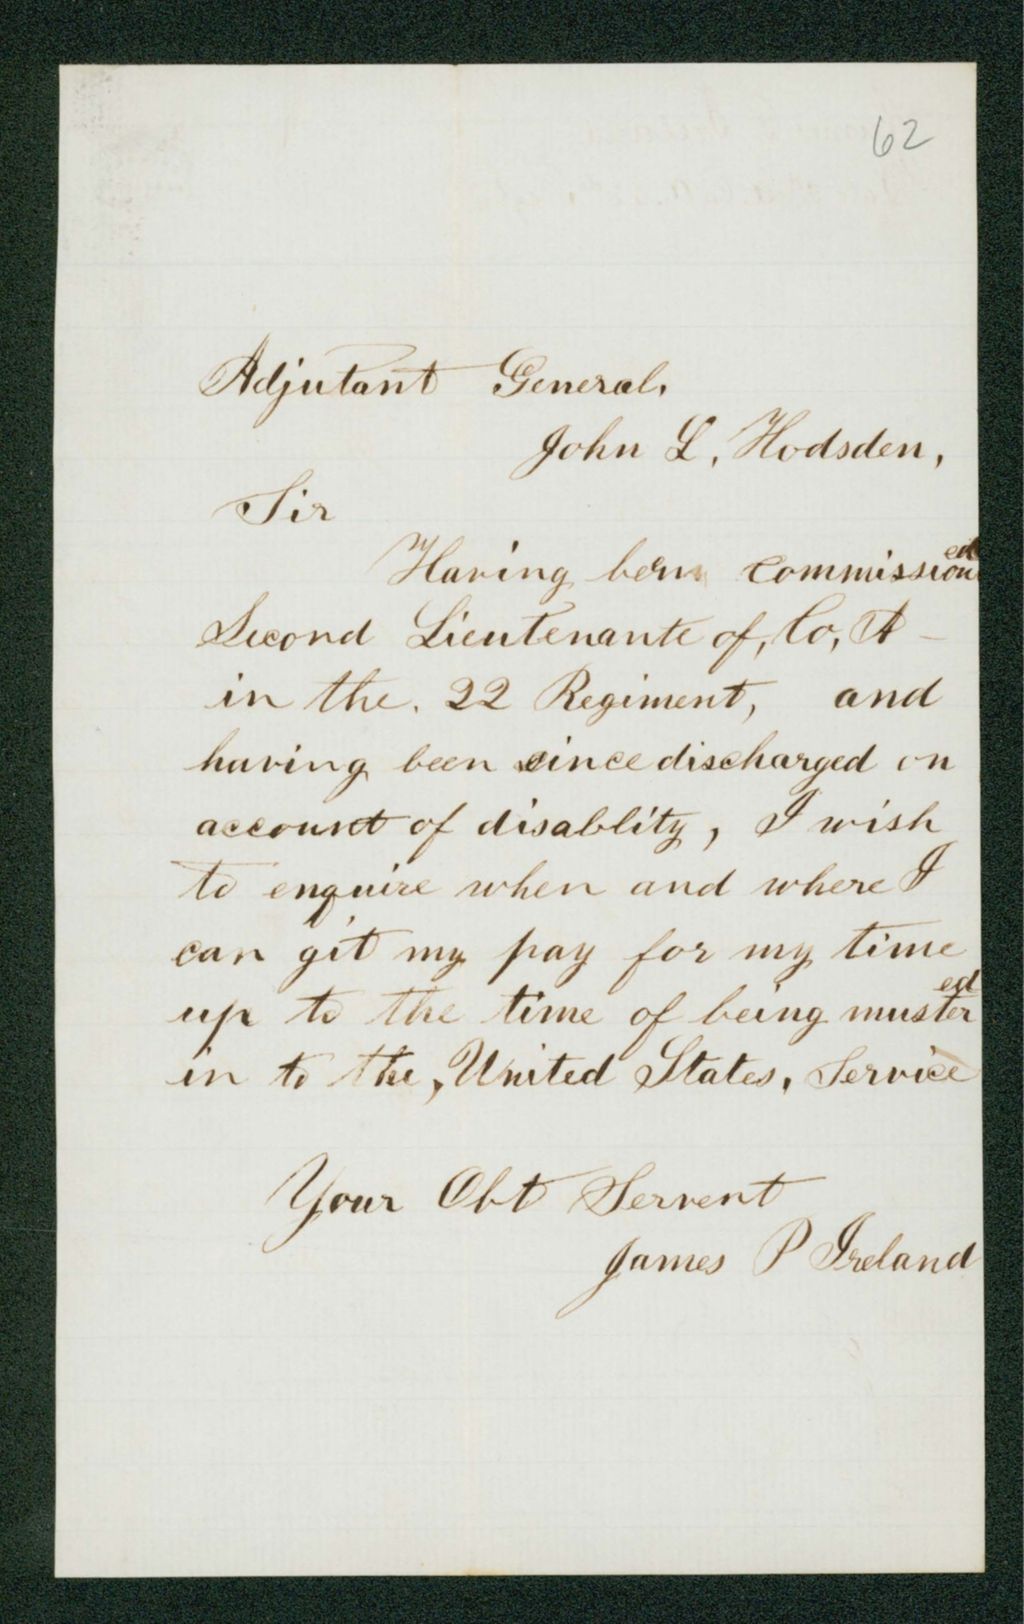 62
Adjutant General,
John L, Hodsden,
Sir
Having been commissioned
Second Lieutenante of, Co, A -
in the, 22 Regiment, and
having been since discharged on
account of disablity, I wish
to enquire when and where I
can git my pay for my time
up to the time of being mustered
in to the, United States, Service
Your Obt Servent
James P Ireland